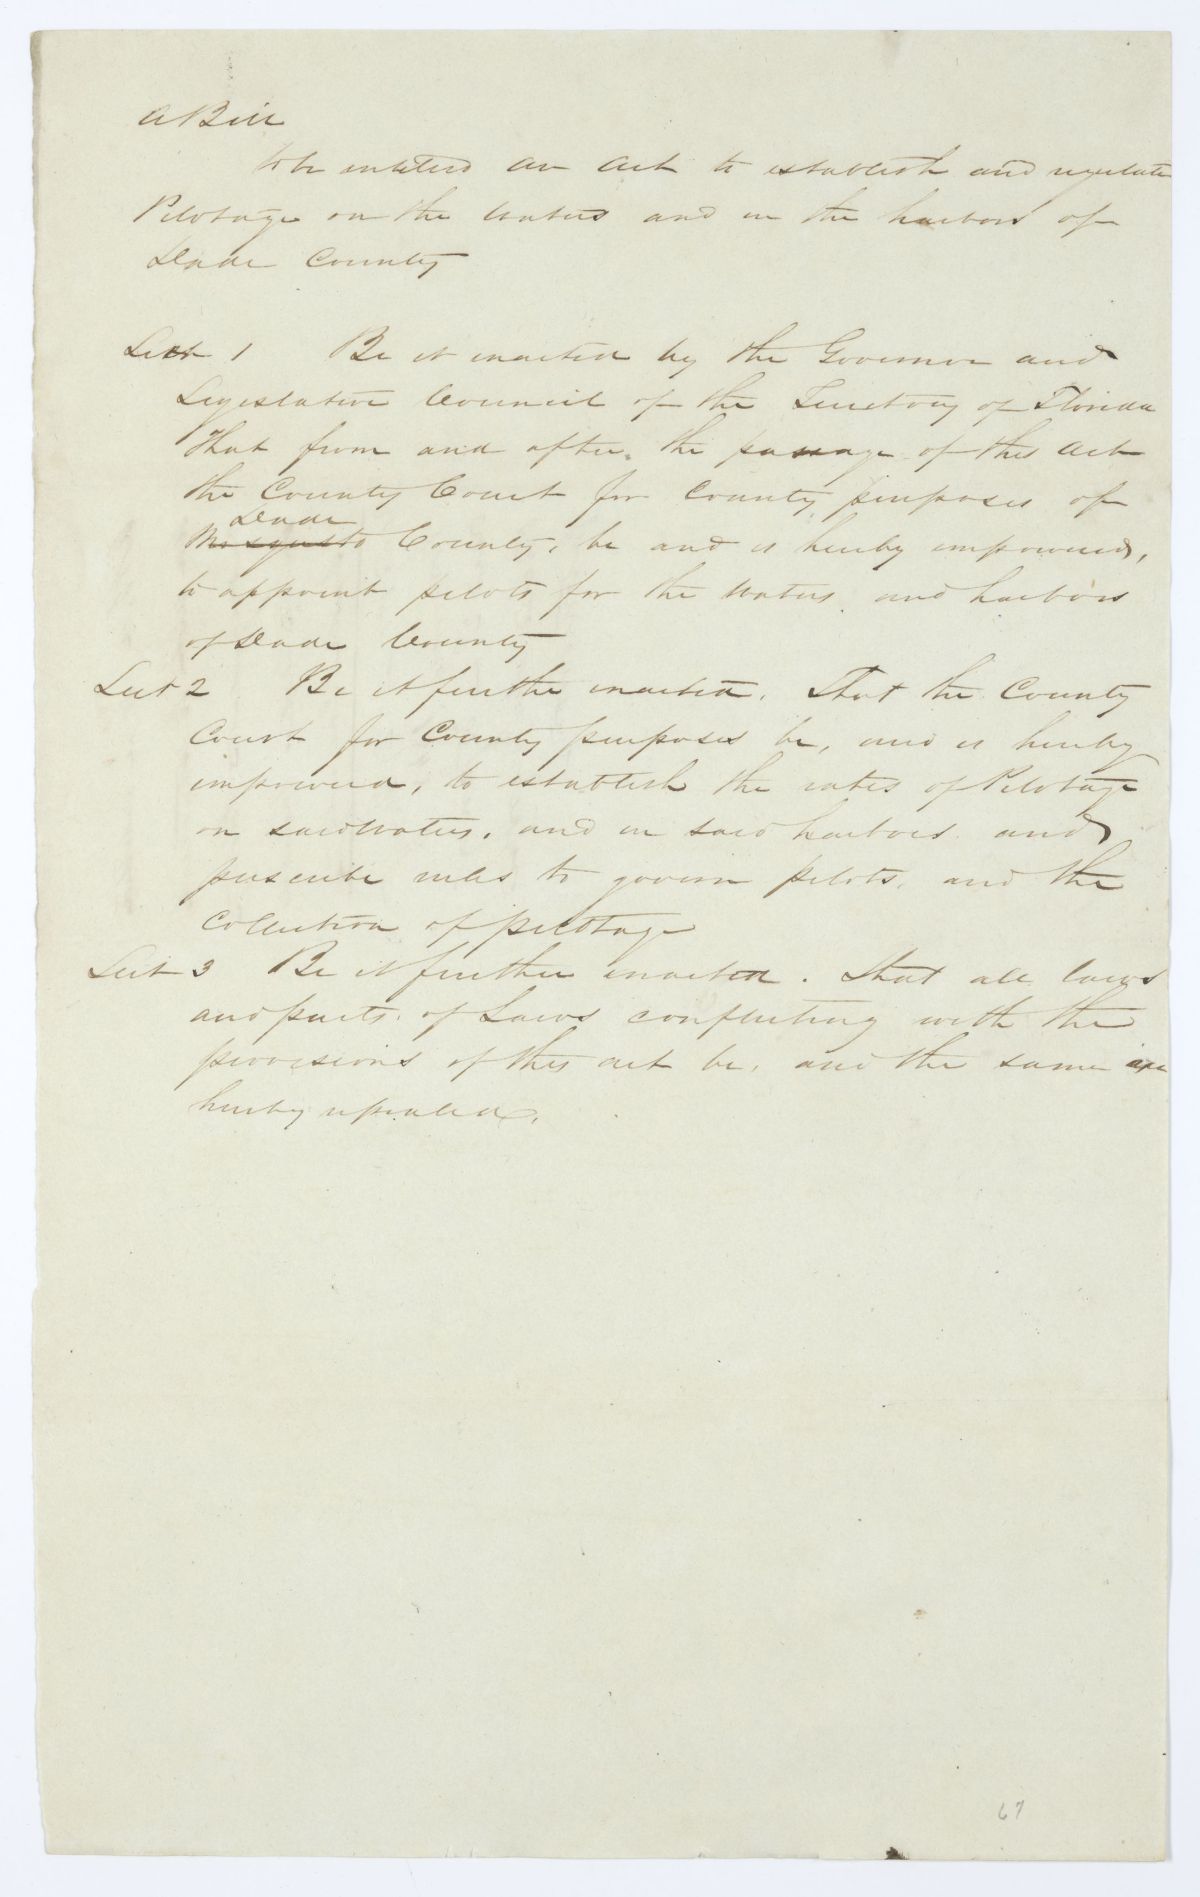 A Bill
to be entitled an act to establish and regulate
Pilotage on the Waters and in the harbors of
Dade County
Sect 1 Be it enacted by the Governor and
Legislative Council of the Territory of Florida
That from and after the passage of this act
the County Court for County purposes of
Dade
Mosquito County, be and is hereby impowered,
to appoint pilots for the waters and harbors
of Dade County
Sect 2 Be it further enacted. That the County
Court for County purposes be, and is hereby
impowered, to establish the rates of Pilotage
on said Waters, and in said harbors and
prescribe rules to govern pilots, and the
Collection of pilotage
Sect 3 Be it further enacted. That all laws
and parts of Laws conflicting with the
provisions of this act be, and the same are
hereby repealed.
67